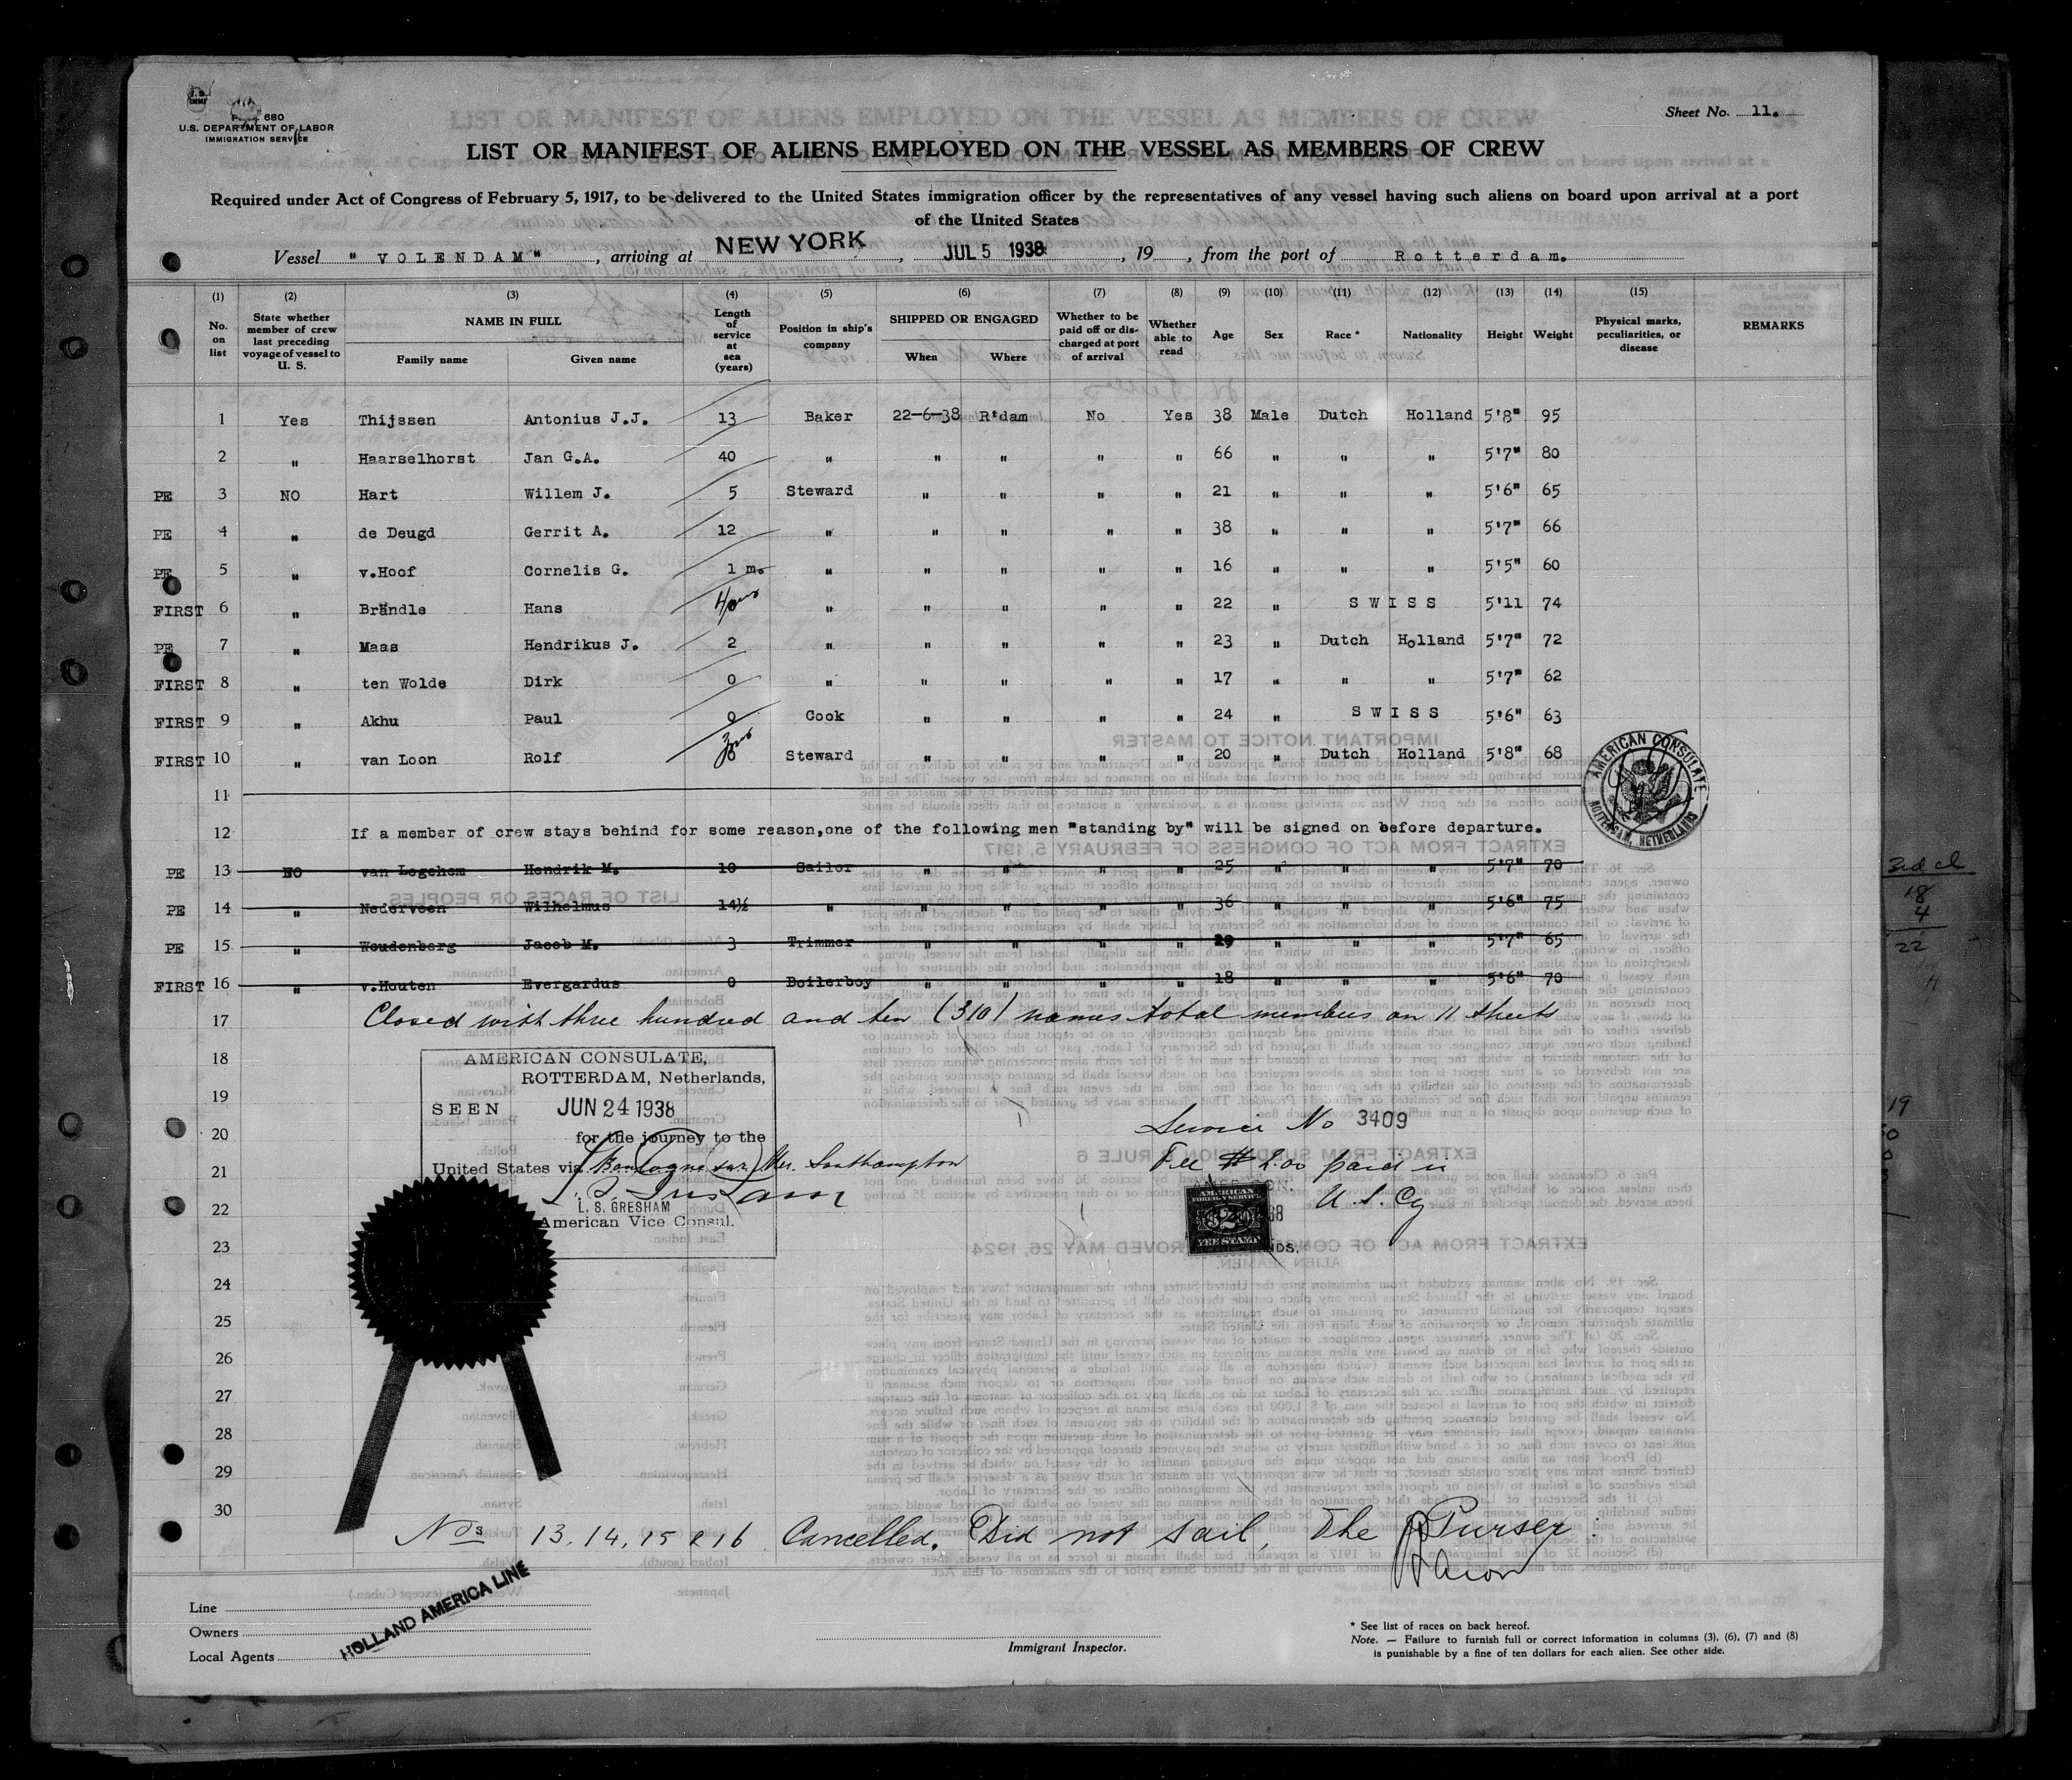 680
U.S. DEPARTMENT OF LABOR
IMMIGRATION SERVICE
Sheet No. 11.
LIST OR MANIFEST OF ALIENS EMPLOYED ON THE VESSEL AS MEMBERS OF CREW
Required under Act of Congress of February 5, 1917, to be delivered to the United States immigration officer by the representatives of any vessel having such aliens on board upon arrival at a port
of the United States
Vessel "VOLENDAM", arriving at NEW YORK, JUL 5 1938, 19 , from the port of Rotterdam.
(1) No. on list (2) State whether member of crew last preceding voyage of vessel to U. S. (3) NAME IN FULL Family name Given name (4) Length of service at sea (years) (5) Position in ship's company (6) SHIPPED OR ENGAGED When Where (7) Whether to be paid off or discharged at port of arrival (8) Whether able to read (9) Age (10) Sex (11) Race * (12) Nationality (13) Height (14) Weight (15) Physical marks, peculiarities, or disease REMARKS
1 Yes Thijssen Antonius J.J. 13 Baker 22-6-38 R'dam No Yes 38 Male Dutch Holland 5'8" 95
2 " Haarselhorst Jan G.A. 40 " " " " " 66 " " " 5'7" 80
PE 3 NO Hart Willem J. 5 Steward " " " " 21 " " " 5'6" 65
PE 4 " de Deugd Gerrit A. 12 " " " " " 38 " " " 5'7" 66
PE 5 " v.Hoof Cornelis G. 1 m. " " " " " 16 " " " 5'5" 60
FIRST 6 " Brändle Hans " " " " " 22 " SWISS 5'11 74
PE 7 " Maas Hendrikus J. 2 " " " " " 23 " Dutch Holland 5'7" 72
FIRST 8 " ten Wolde Dirk 0 " " " " " 17 " " " 5'7" 62
FIRST 9 " Akhu Paul 0 Cook " " " " 24 " SWISS 5'6" 63
FIRST 10 " van Loon Rolf Steward " " " " 20 " Dutch Holland 5'8" 68
11
12 If a member of crew stays behind for some reason,one of the following men "standing by" will be signed on before departure.
PE 13 NO van Logchem Hendrik M. 10 Sailor " " " " 25 " " " 5'7" 70
PE 14 " Nederveen Wilhelmus 14½ " " " " " 36 " " " 5'6" 75
PE 15 " Woudenberg Jacob M. 3 Trimmer " " " " 29 " " " 5'7" 65
FIRST 16 " v.Houten Evergardus 0 Boilerboy " " " " 18 " " " 5'6" 70
17 Closed with three hundred and ten (310) names total members on 11 sheets
18
19
20
21
22
23
24
25
26
27
28
29
30
AMERICAN CONSULATE,
ROTTERDAM, Netherlands,
SEEN JUN 24 1938
for the journey to the
United States via Boulogne sur Mer. Southampton
L. S. GRESHAM
American Vice Consul.
Service No 3409
Fee $2.00 paid in
U. S. Cy
AMERICAN
FOREIGN SERVICE
2
FEE STAMP
AMERICAN CONSULATE
ROTTERDAM, NETHERLANDS
3rd cl
18
4
22
Nos 13, 14, 15 & 16 Cancelled. Did not sail, The Purser.
Line
Owners
Local Agents
HOLLAND AMERICA LINE
Immigrant Inspector.
* See list of races on back hereof.
Note. — Failure to furnish full or correct information in columns (3), (6), (7) and (8)
is punishable by a fine of ten dollars for each alien. See other side.